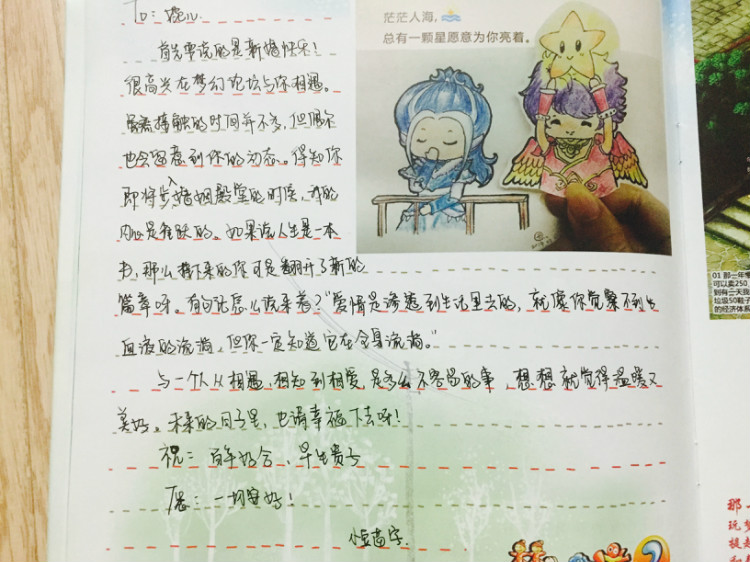 To:
首先要说的是新婚快乐!
很高兴在梦幻论坛与你相遇。
虽然接触的时间并不多,但偶尔
也会留意到你的动态。得知你
即将步入婚姻殿堂的时候,我的
内心是雀跃的。如果说人生是一本
书,那么接下来的你可是翻开了新的
篇章呀。有句话怎么说来着?“爱情是渗透到生活里去的,就像你觉察不到
血液的流淌,但你一定知道它在全身流淌。”
与一个人从相遇,相知到相爱,是多么不容易的事,想想就觉得温暖又
美好。未来的日子里,也请幸福下去呀!
祝:百年好合、早生贵子
愿:一切安好!
茫茫人海,
总有一颗星愿意为你亮着。
01 那一年
可以卖250
到有一天我
垃圾50鞋子
的经济体系
那一
玩梦
提起